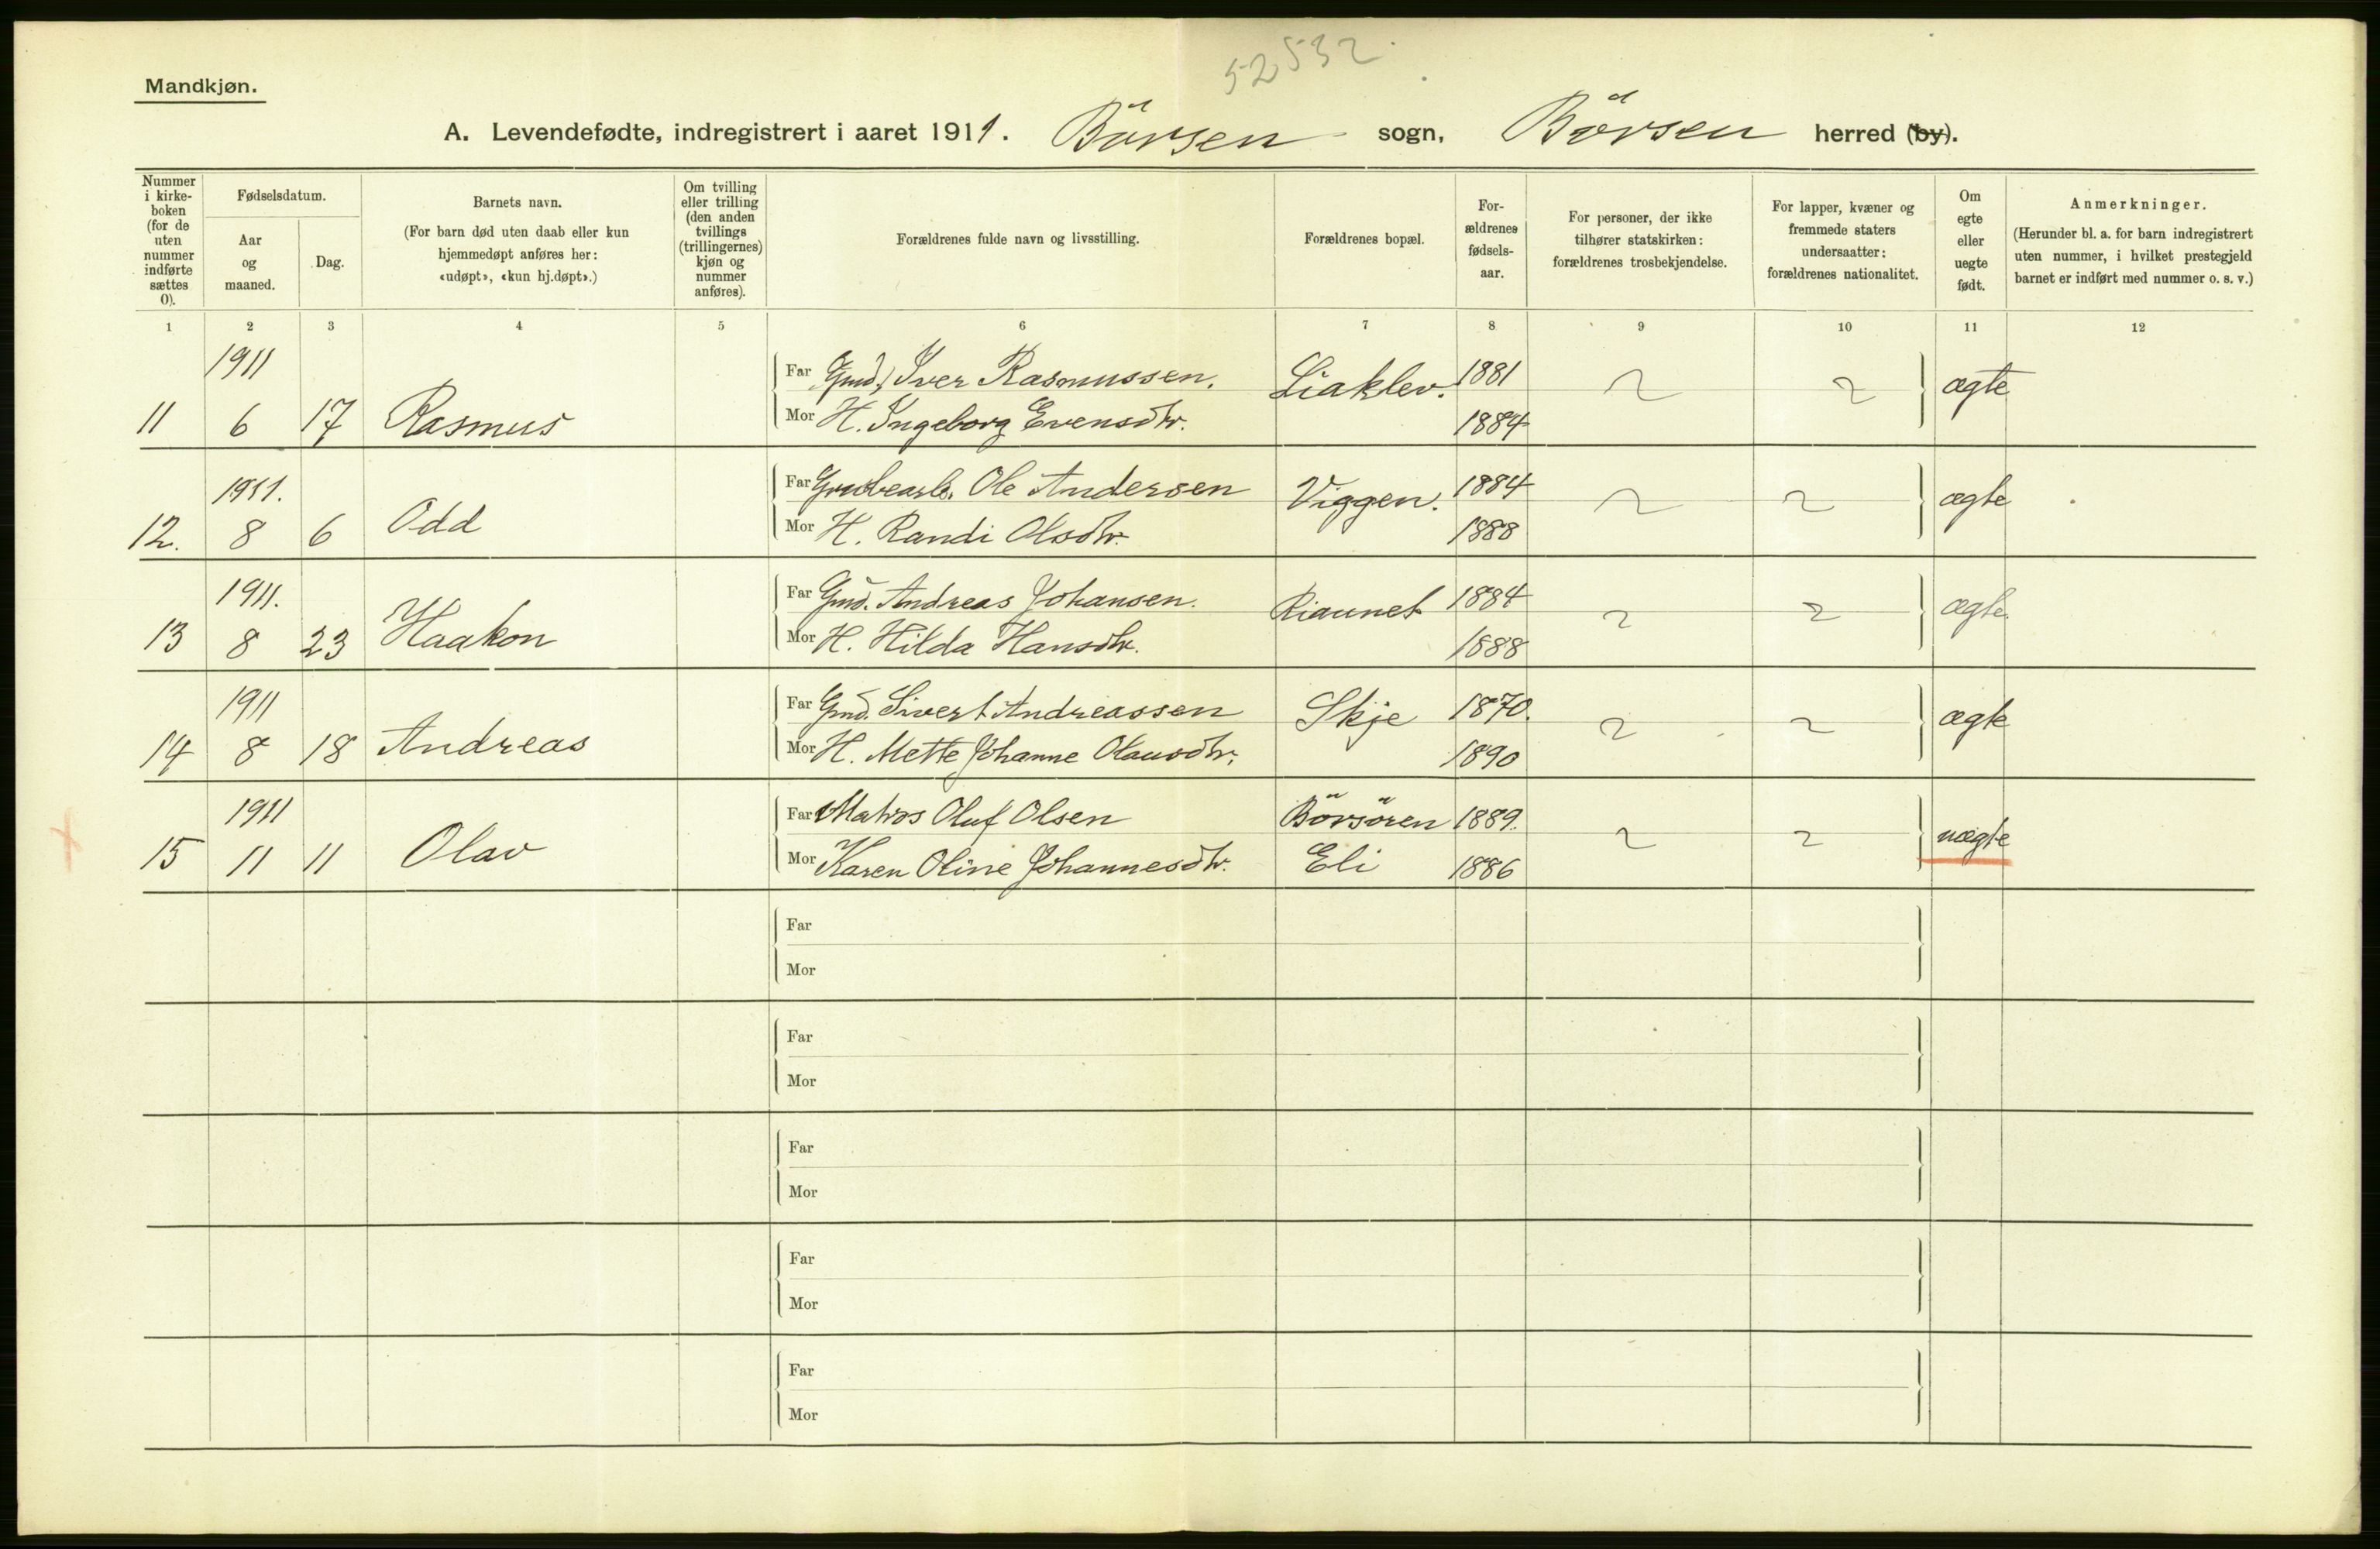 52532.
Mandkjøn.
A. Levendefødte, indregistrert i aaret 1911. Börsen sogn, Börsen herred (by).
Nummer i kirke-boken (for de uten nummer indførte sættes 0).
Fødselsdatum.
Aar og maaned.
Dag.
Barnets navn.
(For barn død uten daab eller kun
hjemmedøpt anføres her:
«udøpt», «kun hj.døpt».)
Om tvilling
eller trilling
(den anden
tvillings
(trillingernes)
kjøn og
nummer
anføres).
Forældrenes fulde navn og livsstilling.
Forældrenes bopæl.
For-
ældrenes
fødsels-
aar.
For personer, der ikke
tilhører statskirken:
forældrenes trosbekjendelse.
For lapper, kvæner og
fremmede staters
undersaatter:
forældrenes nationalitet.
Om
egte
eller
uegte
født.
Anmerkninger.
(Herunder bl. a. for barn indregistrert
uten nummer, i hvilket prestegjeld
barnet er indført med nummer o. s. v.)
1 2 3 4 5 6 7 8 9 10 11 12
1911 Far Gmd, Iver Rasmussen. Liaklev. 1881 ægte
11 6 17 Rasmus Mor H. Ingeborg Evensdtr. 1884
1911. Far Ole Andersen Viggen. 1884 ægte
12. 8 6 Odd Mor H. Randi Olsdtr. 1888
1911. Far Gmd. Andreas Johansen. Riaunet 1884 ægte.
13 8 23 Haakon Mor H. Hilda Hansdtr. 1888
1911 Far Gmd. Sivert Andreassen Skje 1870. ægte
14 8 18 Andreas Mor H. Mette Johanne Olausdtr. 1890
1911 Far Matros Oluf Olsen Börsören 1889. uægte
15 11 11 Olav Mor Karen Oline Johannesdtr. Eli 1886
Far
Mor
Far
Mor
Far
Mor
Far
Mor
Far
Mor